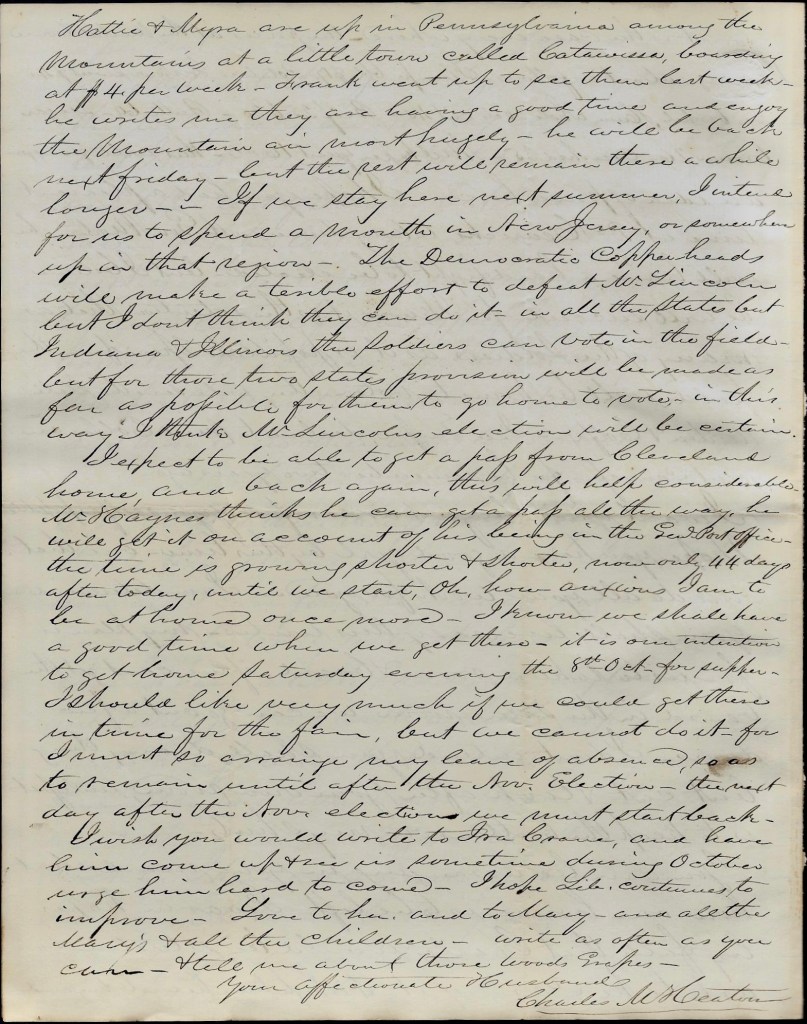 Hattie & Myra are up in Pennsylvania among the
Mountains at a little town called Catawissa, boarding
at $4. per week - Frank went up to see them last week -
he writes me they are having a good time and enjoy
the Mountain air most hugely - he will be back
next friday - but the rest will remain there a while
longer - - If we stay here next summer, I intend
for us to spend a month in New Jersey, or somewhere
up in that region - The Democratic Copperheads
will make a terible effort to defeat Mr. Lincoln
but I dont think they can do it - in all the States but
Indiana & Illinois the Soldiers can vote in the field -
but for those two states provision will be made as
far as possible for them to go home to vote - in this
way I think Mr. Lincolns election will be certain.
I expect to be able to get a pass from Cleveland
home, and back again, this will help considerable -
Mr. Haynes thinks he can get a pass all the way, he
will get it on account of his being in the Genl. Post Office -
the time is growing shorter & shorter, now only 44 days
after today, until we start, Oh, how anxious I am to
be at home once more - I know we shall have
a good time when we get there - it is our intention
to get home Saturday evening the 8th Oct - for supper -
I should like very much if we could get there
in time for the fair, but we cannot do it - for
I must so arrange my leave of absence, so as
to remain until after the Nov. Election - the next
day after the Nov. election we must start back -
I wish you would write to Ira Crane, and have
him come up & see us sometime during October
urge him hard to come - I hope Lib. continues to
improve - Love to her. and to Mary - and all the
Mary's & all the children - write as often as you
can - & tell me about those Woods Grapes -
Your affectionate Husband
Charles M Heaton